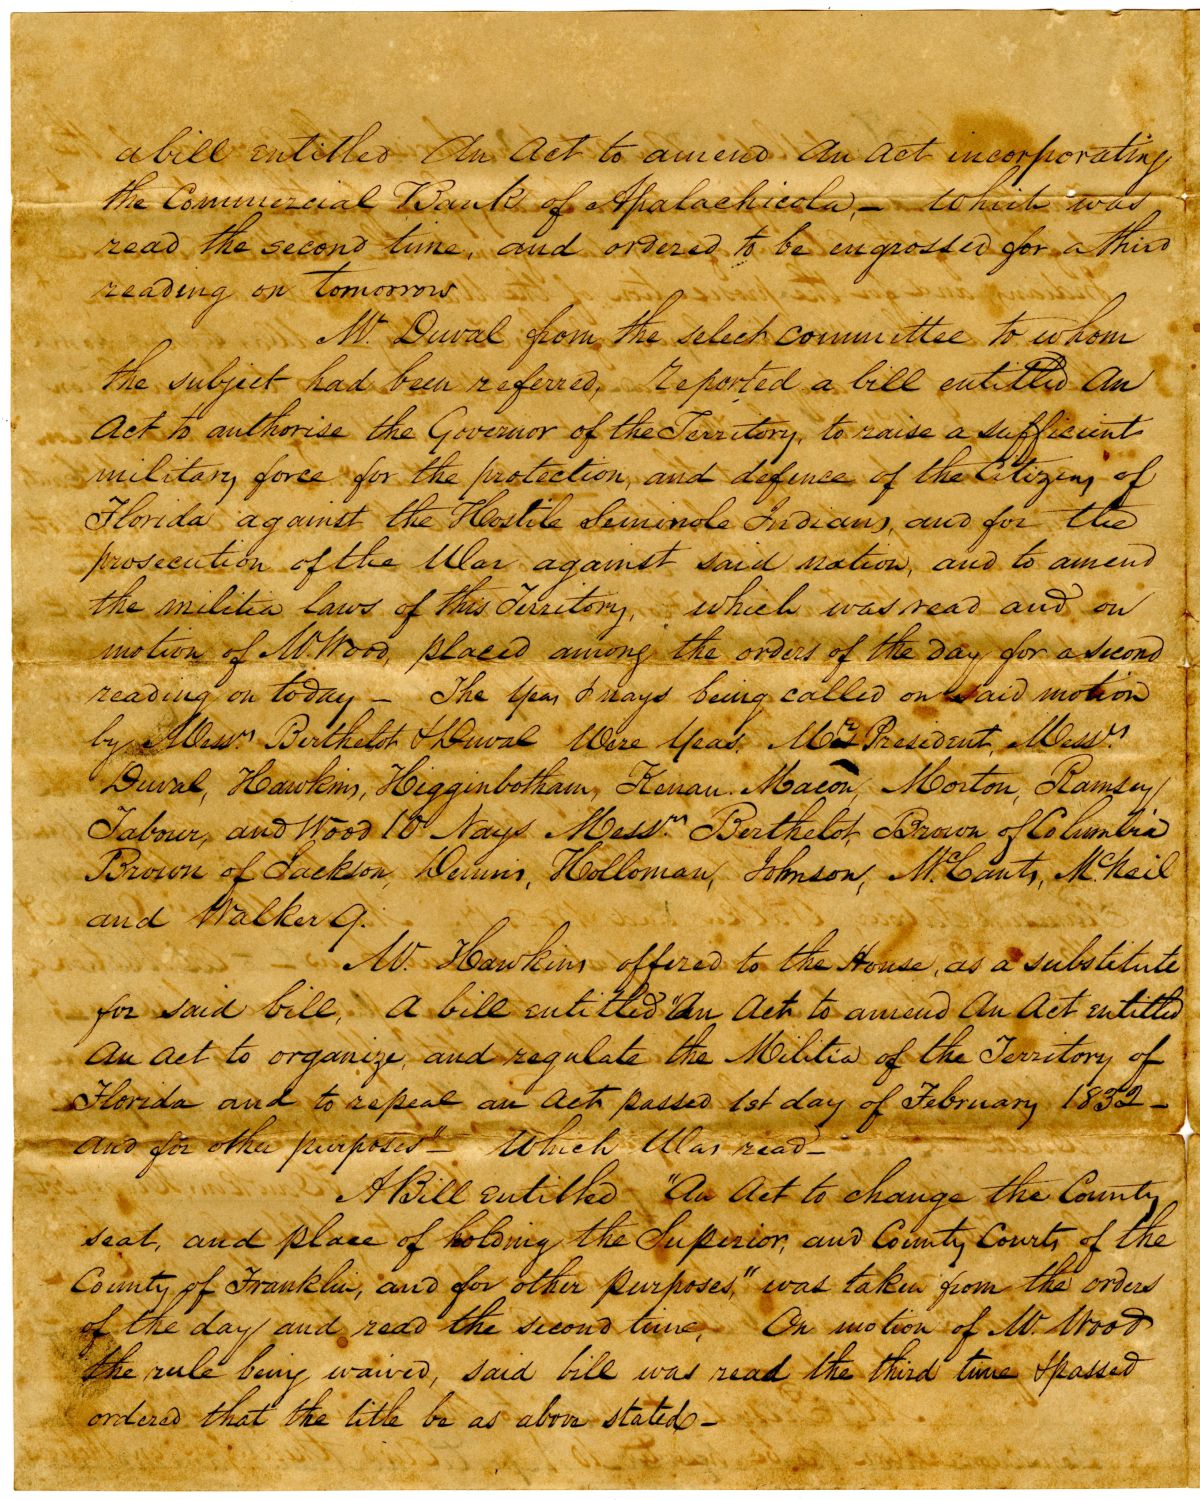 a bill entitled An Act to amend An Act incorporating
the Commercial Bank of Apalachicola, – Which was
read the second time, and ordered to be engrossed for a third
reading on tomorrow
Mr. Duval from the select committee to whom
the subject had been referred, reported a bill entitled An
Act to authorise the Governor of the Territory, to raise a sufficient
military force for the protection, and defence of the Citizens of
Florida against the Hostile Seminole Indians, and for the
prosecution of the War against said nation, and to amend
the militia laws of this Territory, which was read and on
motion of Mr. Wood, placed among the orders of the day for a second
reading on today – The Yeas & nays being called on said motion
by Messrs Berthelot & Duval Were Yeas. Mr President, Messrs.
Duval, Hawkins, Higginbotham, Kenan. Macon, Morton, Ramsey,
Tabour, and Wood 10 Nays Messrs Berthelot, Brown of Columbia
Brown of Jackson, Dennis, Holloman, Johnson, McCants, McNeil
and Walker 9.
Mr. Hawkins offered to the House, as a substitute
for said bill, a bill entitled "An Act to amend An Act entitled
An act to organize, and regulate the Militia of the Territory of
Florida and to repeal an Act passed 1st day of February 1832 –
and for other purposes" – Which Was read –
A Bill entitled "An Act to change the County
seat, and place of holding the Superior, and County Courts of the
County of Franklin, and for other purposes," was taken from the orders
of the day, and read the second time, On motion of Mr. Wood
the rule being waived, said bill was read the third time & passed
ordered that the title be as above stated –